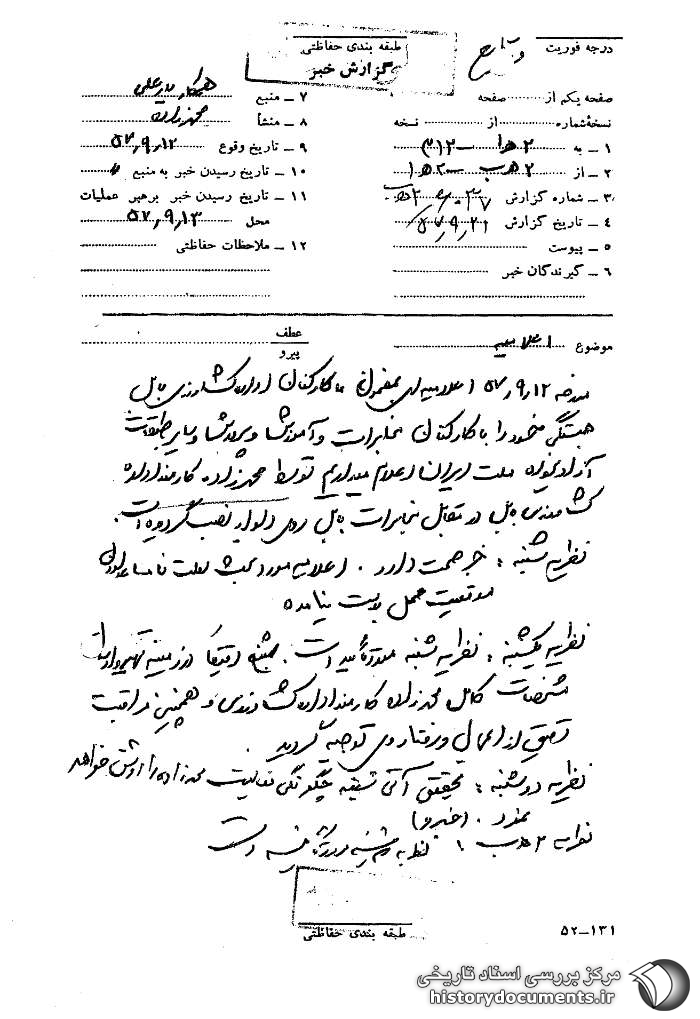 درجه فوریت
طبقه بندی حفاظتی
گزارش خبر
صفحه یکم از ........ صفحه
نسخهٔ شماره ........ از ........ نسخه
۱ – به ۲ ه‍ ۱ – ۳۱۲
۲ – از ۲ ه‍ ب – ۲ ه‍ ۱
۳ – شماره گزارش
۴ – تاریخ گزارش ۵۷٫۹٫۲۱
۵ – پیوست
۶ – گیرندگان خبر
۷ – منبع همکار
۸ – منشأ مهرزاده
۹ – تاریخ وقوع ۵۷٫۹٫۱۲
۱۰ – تاریخ رسیدن خبر به منبع "
۱۱ – تاریخ رسیدن خبر برهبر عملیات
محل ۵۷٫۹٫۱۳
۱۲ – ملاحظات حفاظتی
موضوع اعلامیه
عطف
پیرو
مورخه ۵۷٫۹٫۱۲ اعلامیه‌ای بمضمون ما کارکنان اداره کشاورزی بابل
همبستگی خود را با کارکنان مخابرات و آموزش و پرورش و سایر طبقات
آزادیخواه ملت ایران اعلام میداریم توسط مهرزاده کارمند اداره
کشاورزی بابل در مقابل مخابرات بابل روی دیوار نصب گردیده است.
نظریه شنبه : خبر صحت دارد . اعلامیه مورد بحث بعلت نامساعد بودن
موقعیت محل بدست نیامده
نظریه یکشنبه : نظریه شنبه مورد تأیید است . بمنبع در زمینه تهیه و ارسال
مشخصات کامل مهرزاده کارمند اداره کشاورزی و همچنین مراقبت
دقیق از اعمال و رفتار وی توجیه گردید .
نظریه دوشنبه : تحقیق آتی نتیجه چگونگی فعالیت مهرزاده را روشن خواهد
نمود . (خبرو)
نظریه ۲ ه‍ ب : نظریه شنبه مورد تأیید است
طبقه بندی حفاظتی
۵۲–۱۳۱
مرکز بررسی اسناد تاریخی
historydocuments.ir